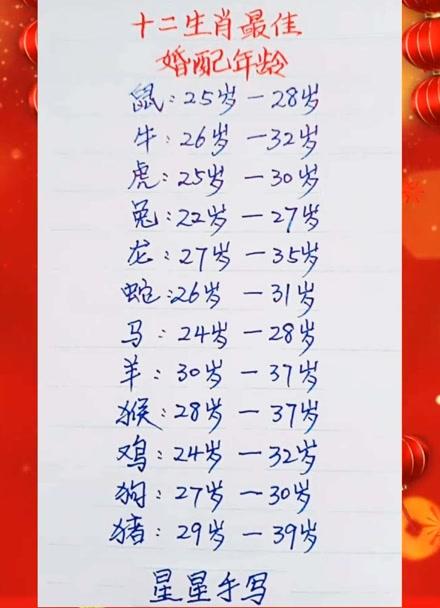 十二生肖最佳
婚配年龄
鼠:25岁一28岁
牛:26岁一32岁
虎:25岁一30岁
兔:22岁一27岁
龙:27岁一35岁
蛇:26岁一31岁
马:24岁一28岁
羊:30岁一37岁
猴:28岁一37岁
鸡:24岁一32岁
狗:27岁一30岁
猪:29岁一39岁
星星手写